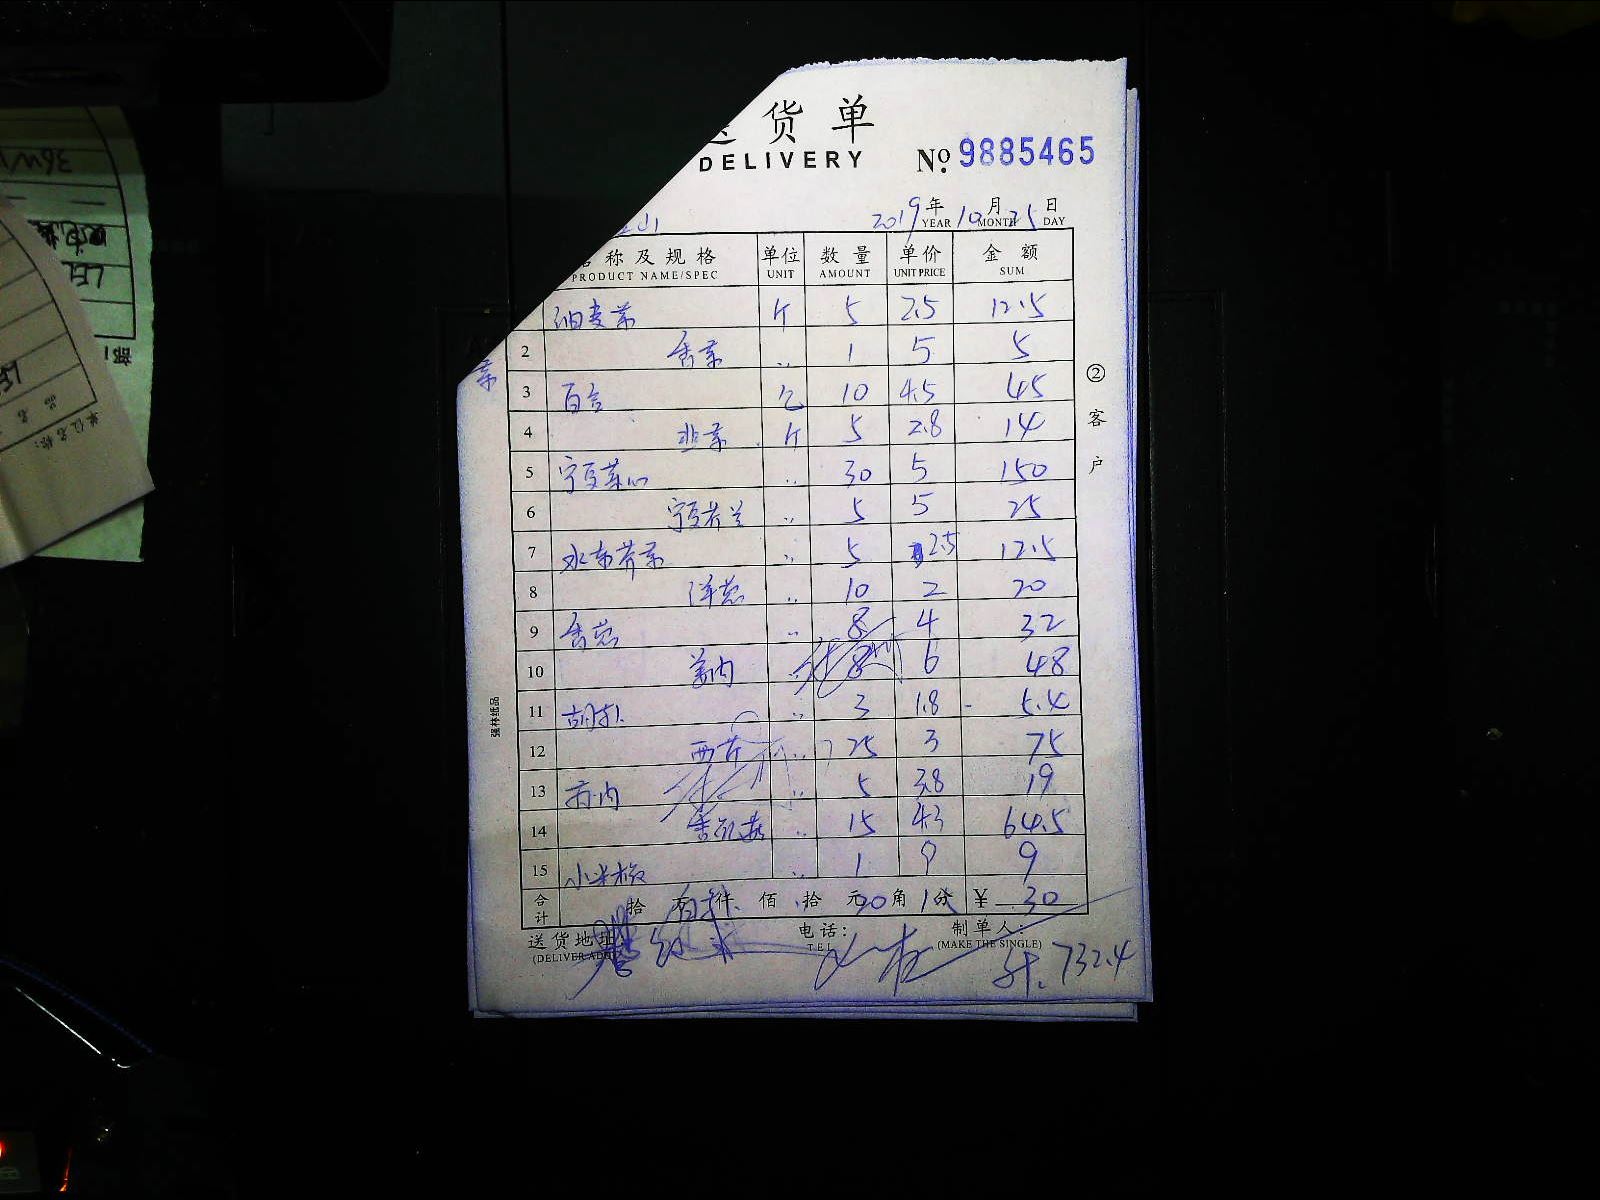 送货单
DELIVERY
№ 9885465
2019年 10月 25日
YEAR MONTH DAY
名称及规格 单位 数量 单价 金额
PRODUCT NAME/SPEC UNIT AMOUNT UNIT PRICE SUM
油麦菜 斤 5 2.5 12.5
2 香菜 〃 1 5 5
3 百合 包 10 4.5 45
4 韭菜 斤 5 2.8 14
5 宁夏菜心 〃 30 5 150
6 宁夏芥兰 〃 5 5 25
7 水东芥菜 〃 5 2.5 12.5
8 洋葱 〃 10 2 20
9 香葱 〃 8 4 32
10 姜肉 〃 8 6 48
11 胡萝卜 〃 3 1.8 5.4
12 西芹 〃 25 3 75
13 5 3.8 19
14 〃 15 4.3 64.5
15 小米椒 〃 1 9 9
合计 拾 佰 拾 元 角 分 ¥ 30
送货地址 电话: 制单人:
(DELIVER ADD) TEL (MAKE THE SINGLE)
732.4
②客户
强林纸品
菜